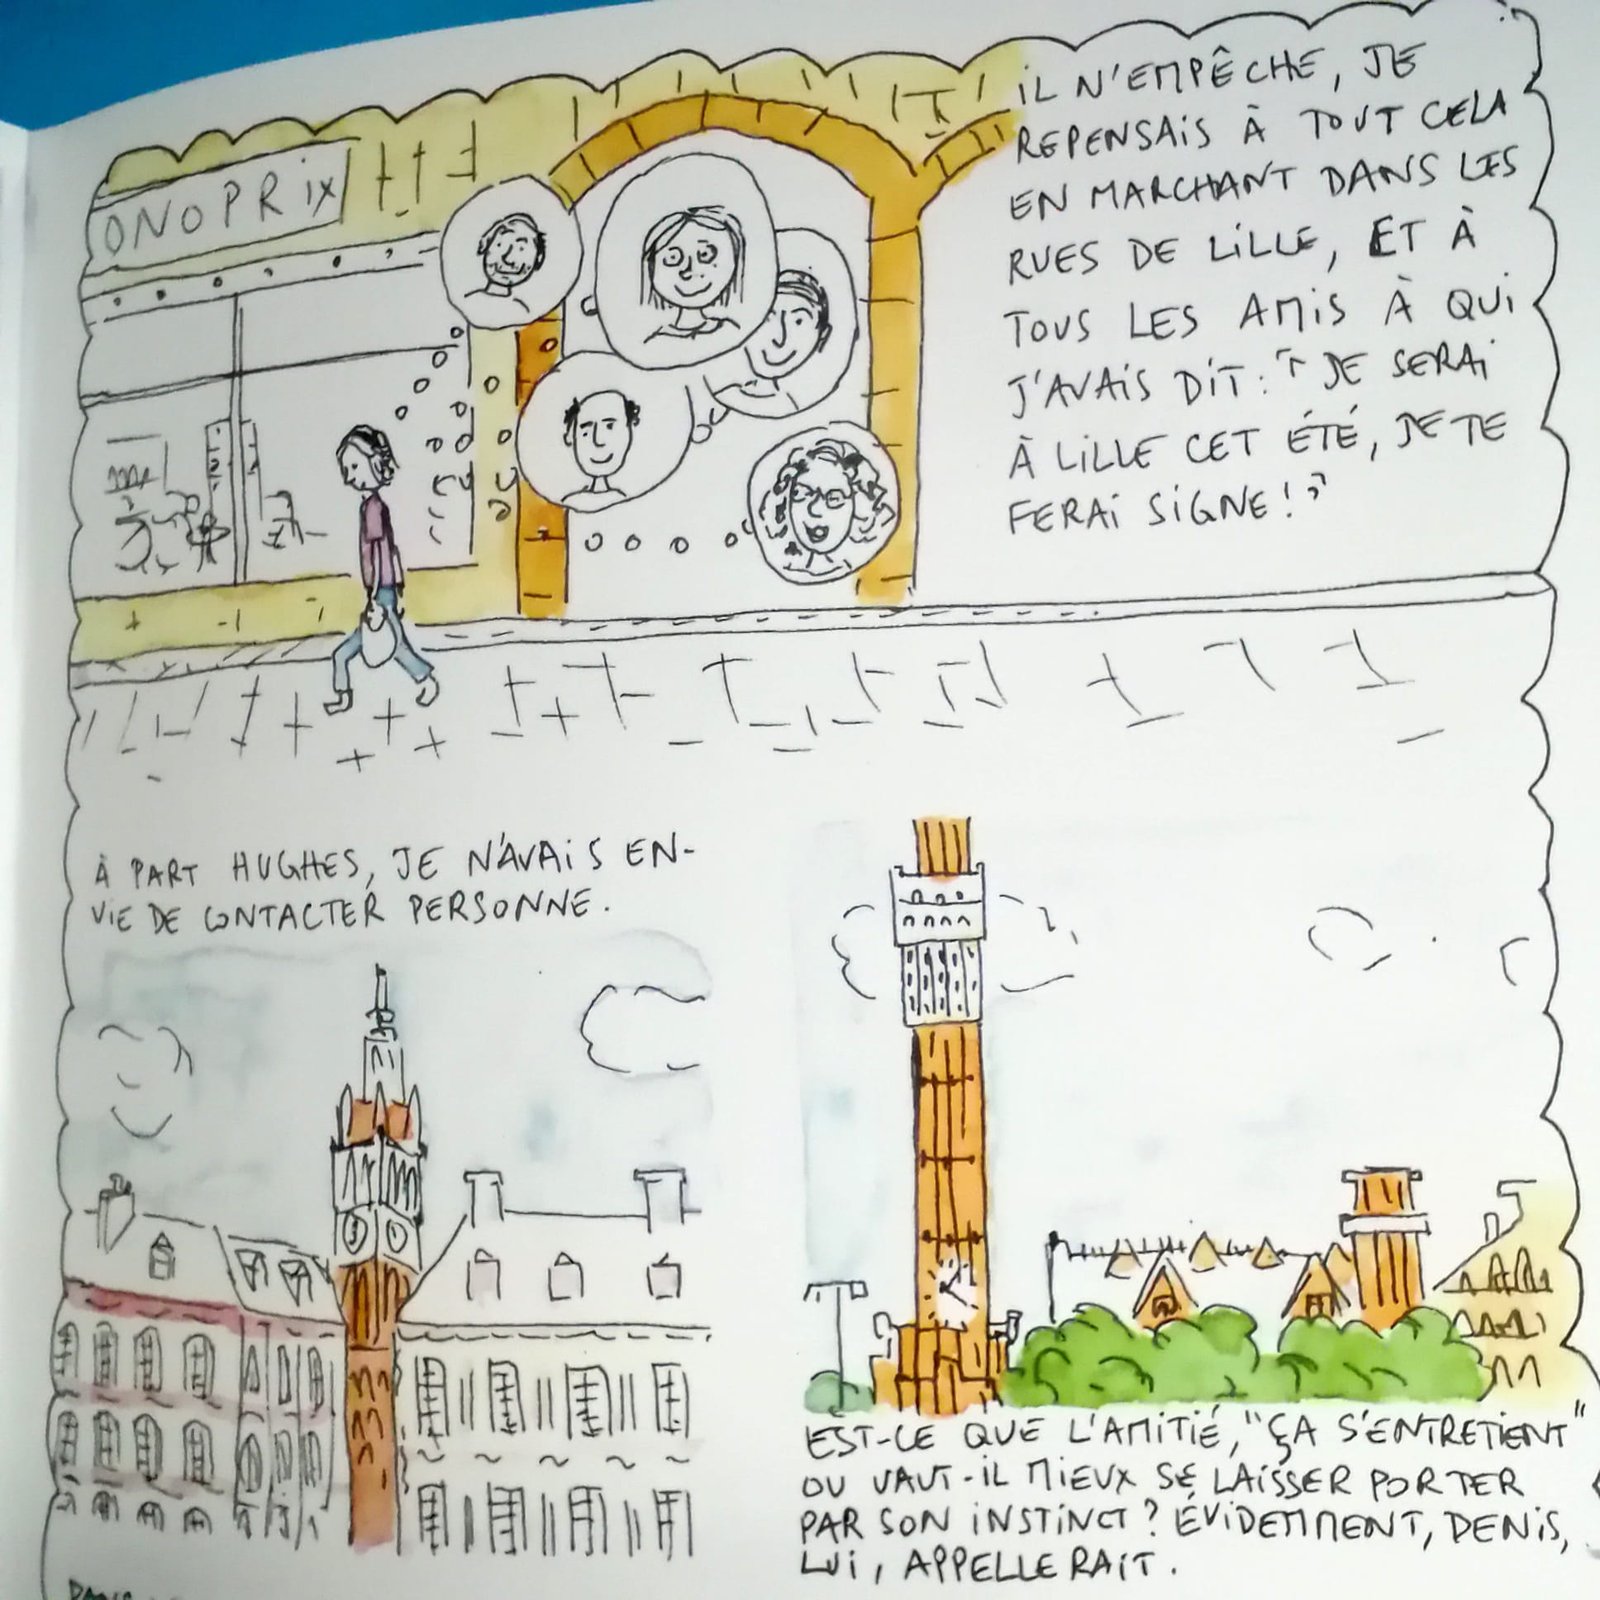 ONOPRIX
IL N'EMPÊCHE, JE
REPENSAIS À TOUT CELA
EN MARCHANT DANS LES
RUES DE LILLE, ET À
TOUS LES AMIS À QUI
J'AVAIS DIT: "JE SERAI
À LILLE CET ÉTÉ, JE TE
FERAI SIGNE!"
À PART HUGHES, JE N'AVAIS EN-
VIE DE CONTACTER PERSONNE.
EST-CE QUE L'AMITIÉ, "ÇA S'ENTRETIENT"
OU VAUT-IL MIEUX SE LAISSER PORTER
PAR SON INSTINCT? ÉVIDEMMENT, DENIS,
LUI, APPELLERAIT.